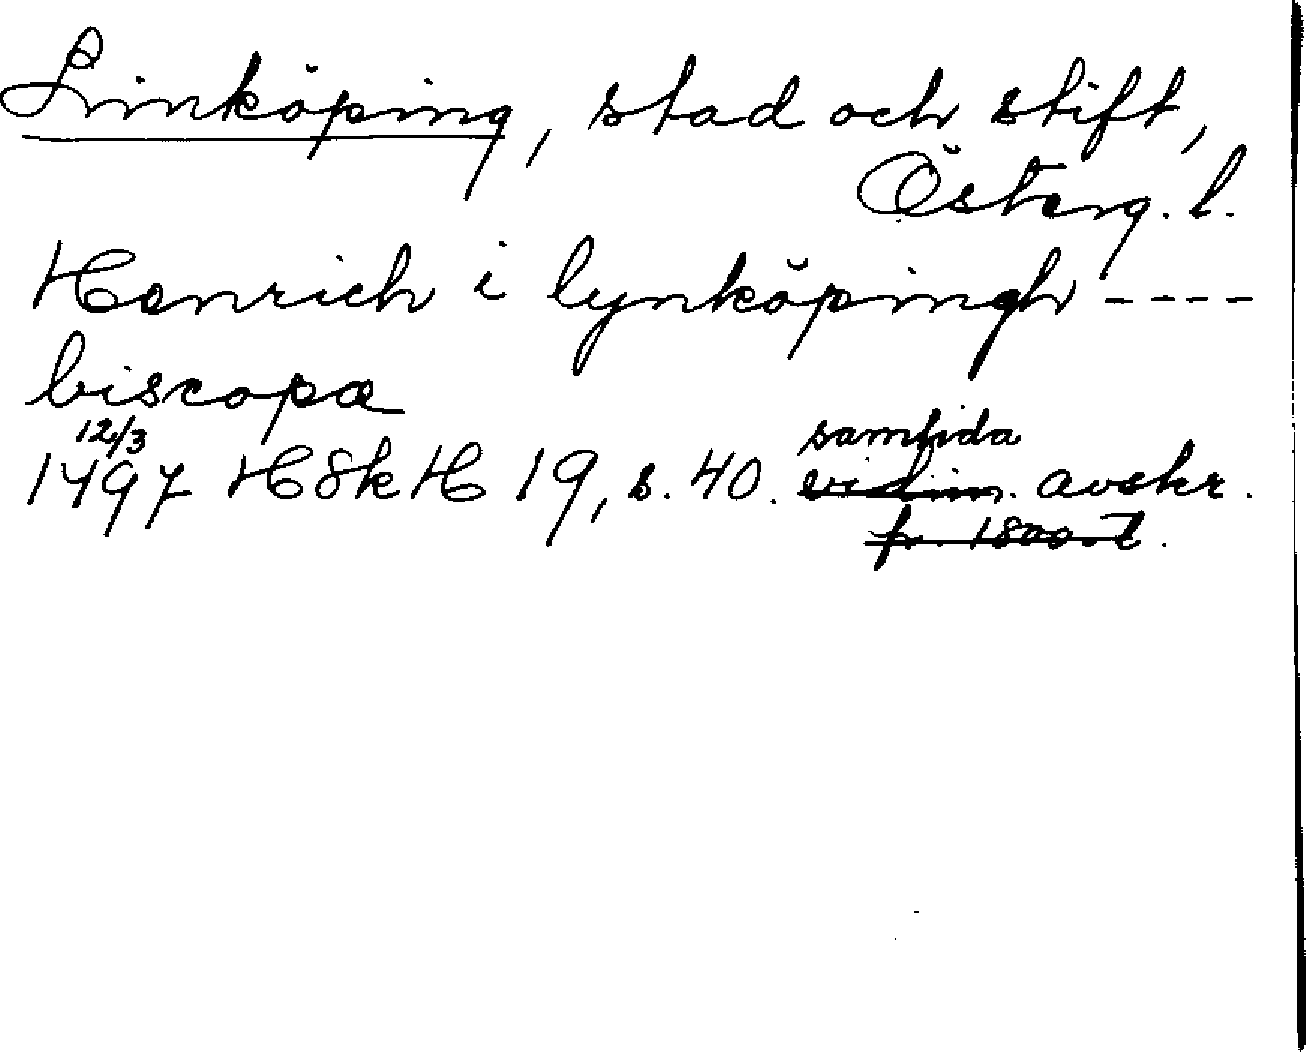 Linköping, stad och stift,
Österg. l.
Henrich i lynköpingh ----
biscopa
12/3
1497 HSkH 19, s. 40. samtida
vidim. avskr.
fr. 1800-t.